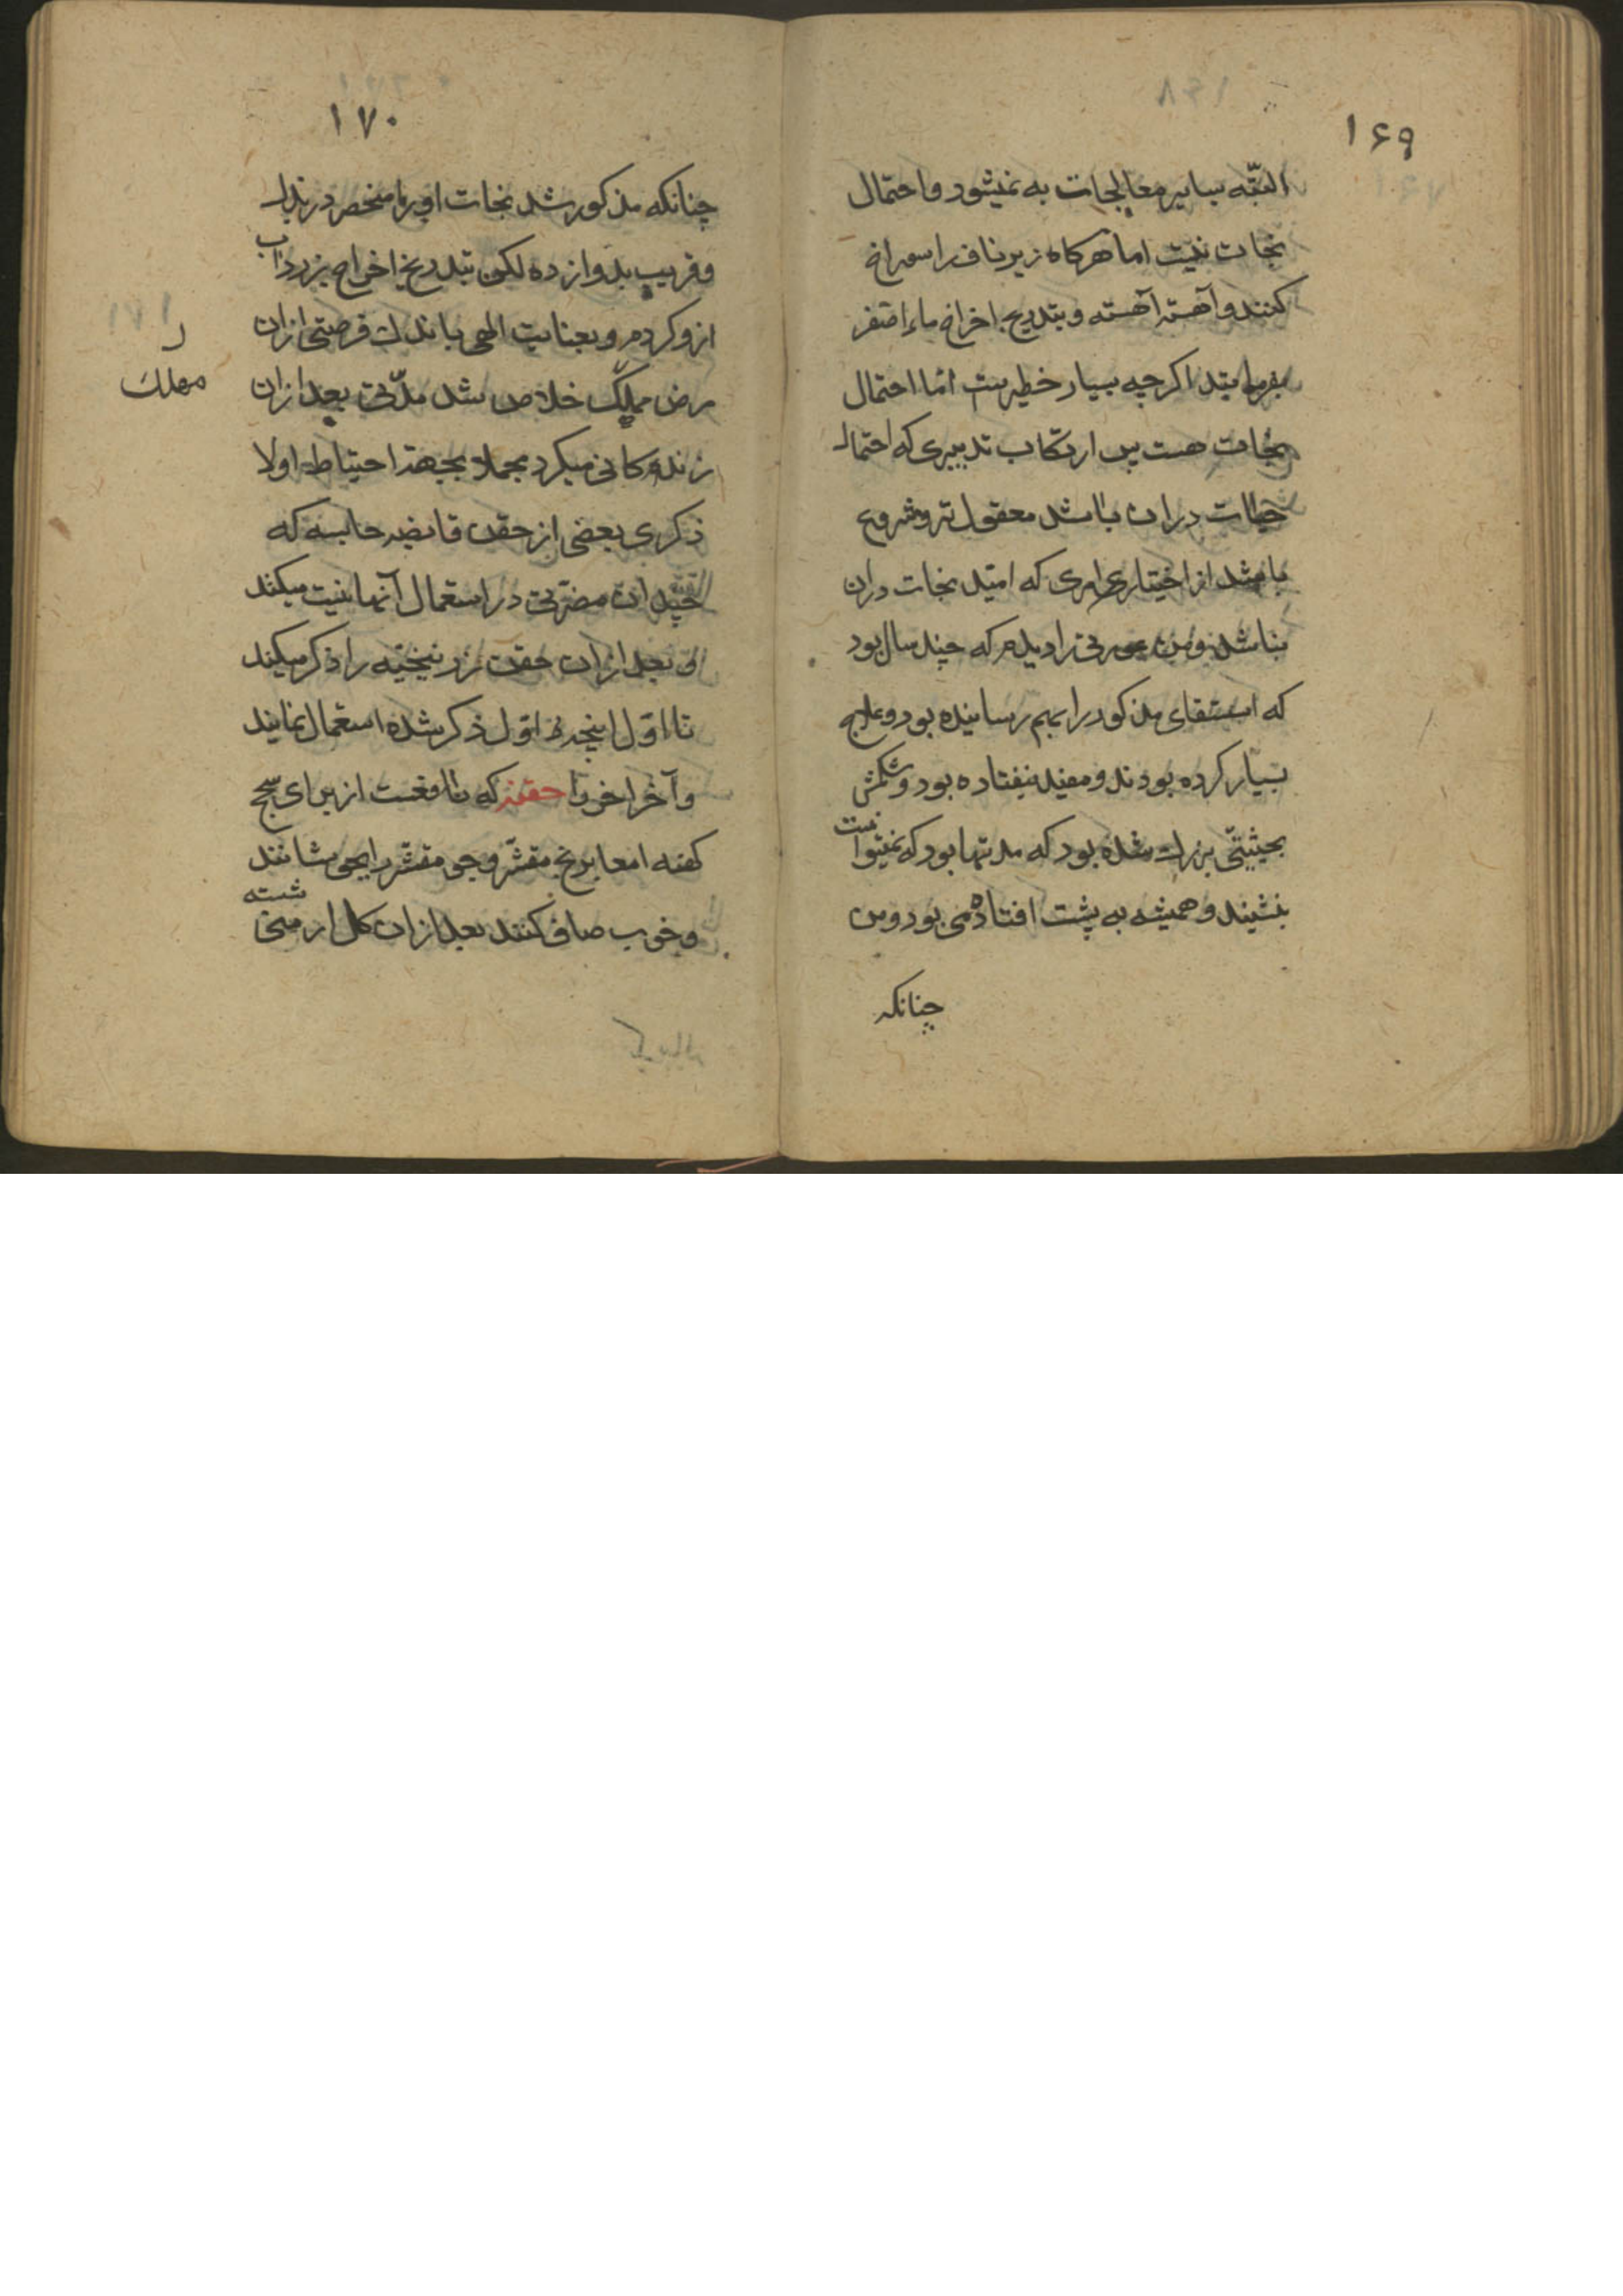 ۱۶۹
البتّه بسایر معالجات به نمیشود و احتمال
نجات نیست اما هرکاه زیر ناف را سوراخ
کنند و آهسته آهسته و بتدریج اخراج ماء اصفر
بفرمایند اکرچه بسیار خطیرست امّا احتمال
نجات هست پس ارتکاب تدبیری که احتمال
حیات دران باشد معقول تر و مشروع
باشد از اختیار امری که امید نجات دران
نباشد و من عورتی را دیدم که چند سال بود
که استسقای مذکور را بهم رسانیده بود و علاج
بسیار کرده بودند و مفید نیفتاده بود و شکمش
بحیثیّتی بزرك شده بود که مدتها بود که نمیتوانست
بنشیند و همیشه به پشت افتاده می بود و من
چنانکه
۱۷۰
چنانکه مذکور شد نجات او را منحصر در بذل
و قریب بدوازده لکن بتدریج اخراج زرداب
ازو کردم و بعنایت الهی باندك فرصتی ازان
مرض مهلك خلاص شد مدّتی بعد ازان
مهلك
زنده کانی میکرد مجملا بجهة احتیاط اولا
ذکری بعضی از حقن قابضه حابسه که
چندان مضرّتی در استعمال آنها نیست میکند
و بعد ازان حقن زرنیخیّه را ذکر میکند
تا اوّل انچه در اوّل ذکر شده استعمال نمایند
و آخر اخر را حقنه که نافعست از برای سحج
کهنه امعا برنج مقشّر و جو مقشّر را بجوشانند
و خوب صاف کنند بعد ازان کل ارمنی شسته